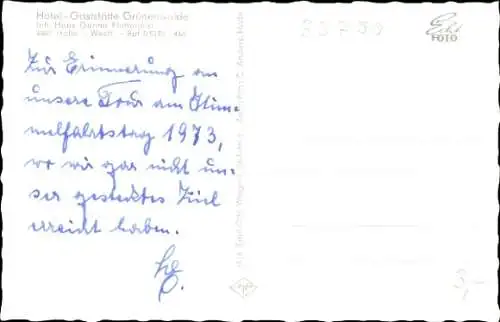 Hotel-Gaststätte Grünenwalde
Inh. Hans Günter
Zur Erinnerung an
unsere Tour am Him-
melfahrtstag 1973,
wo wir gar nicht un-
ser gestecktes Ziel
erreicht haben.
Echt
FOTO
3,-